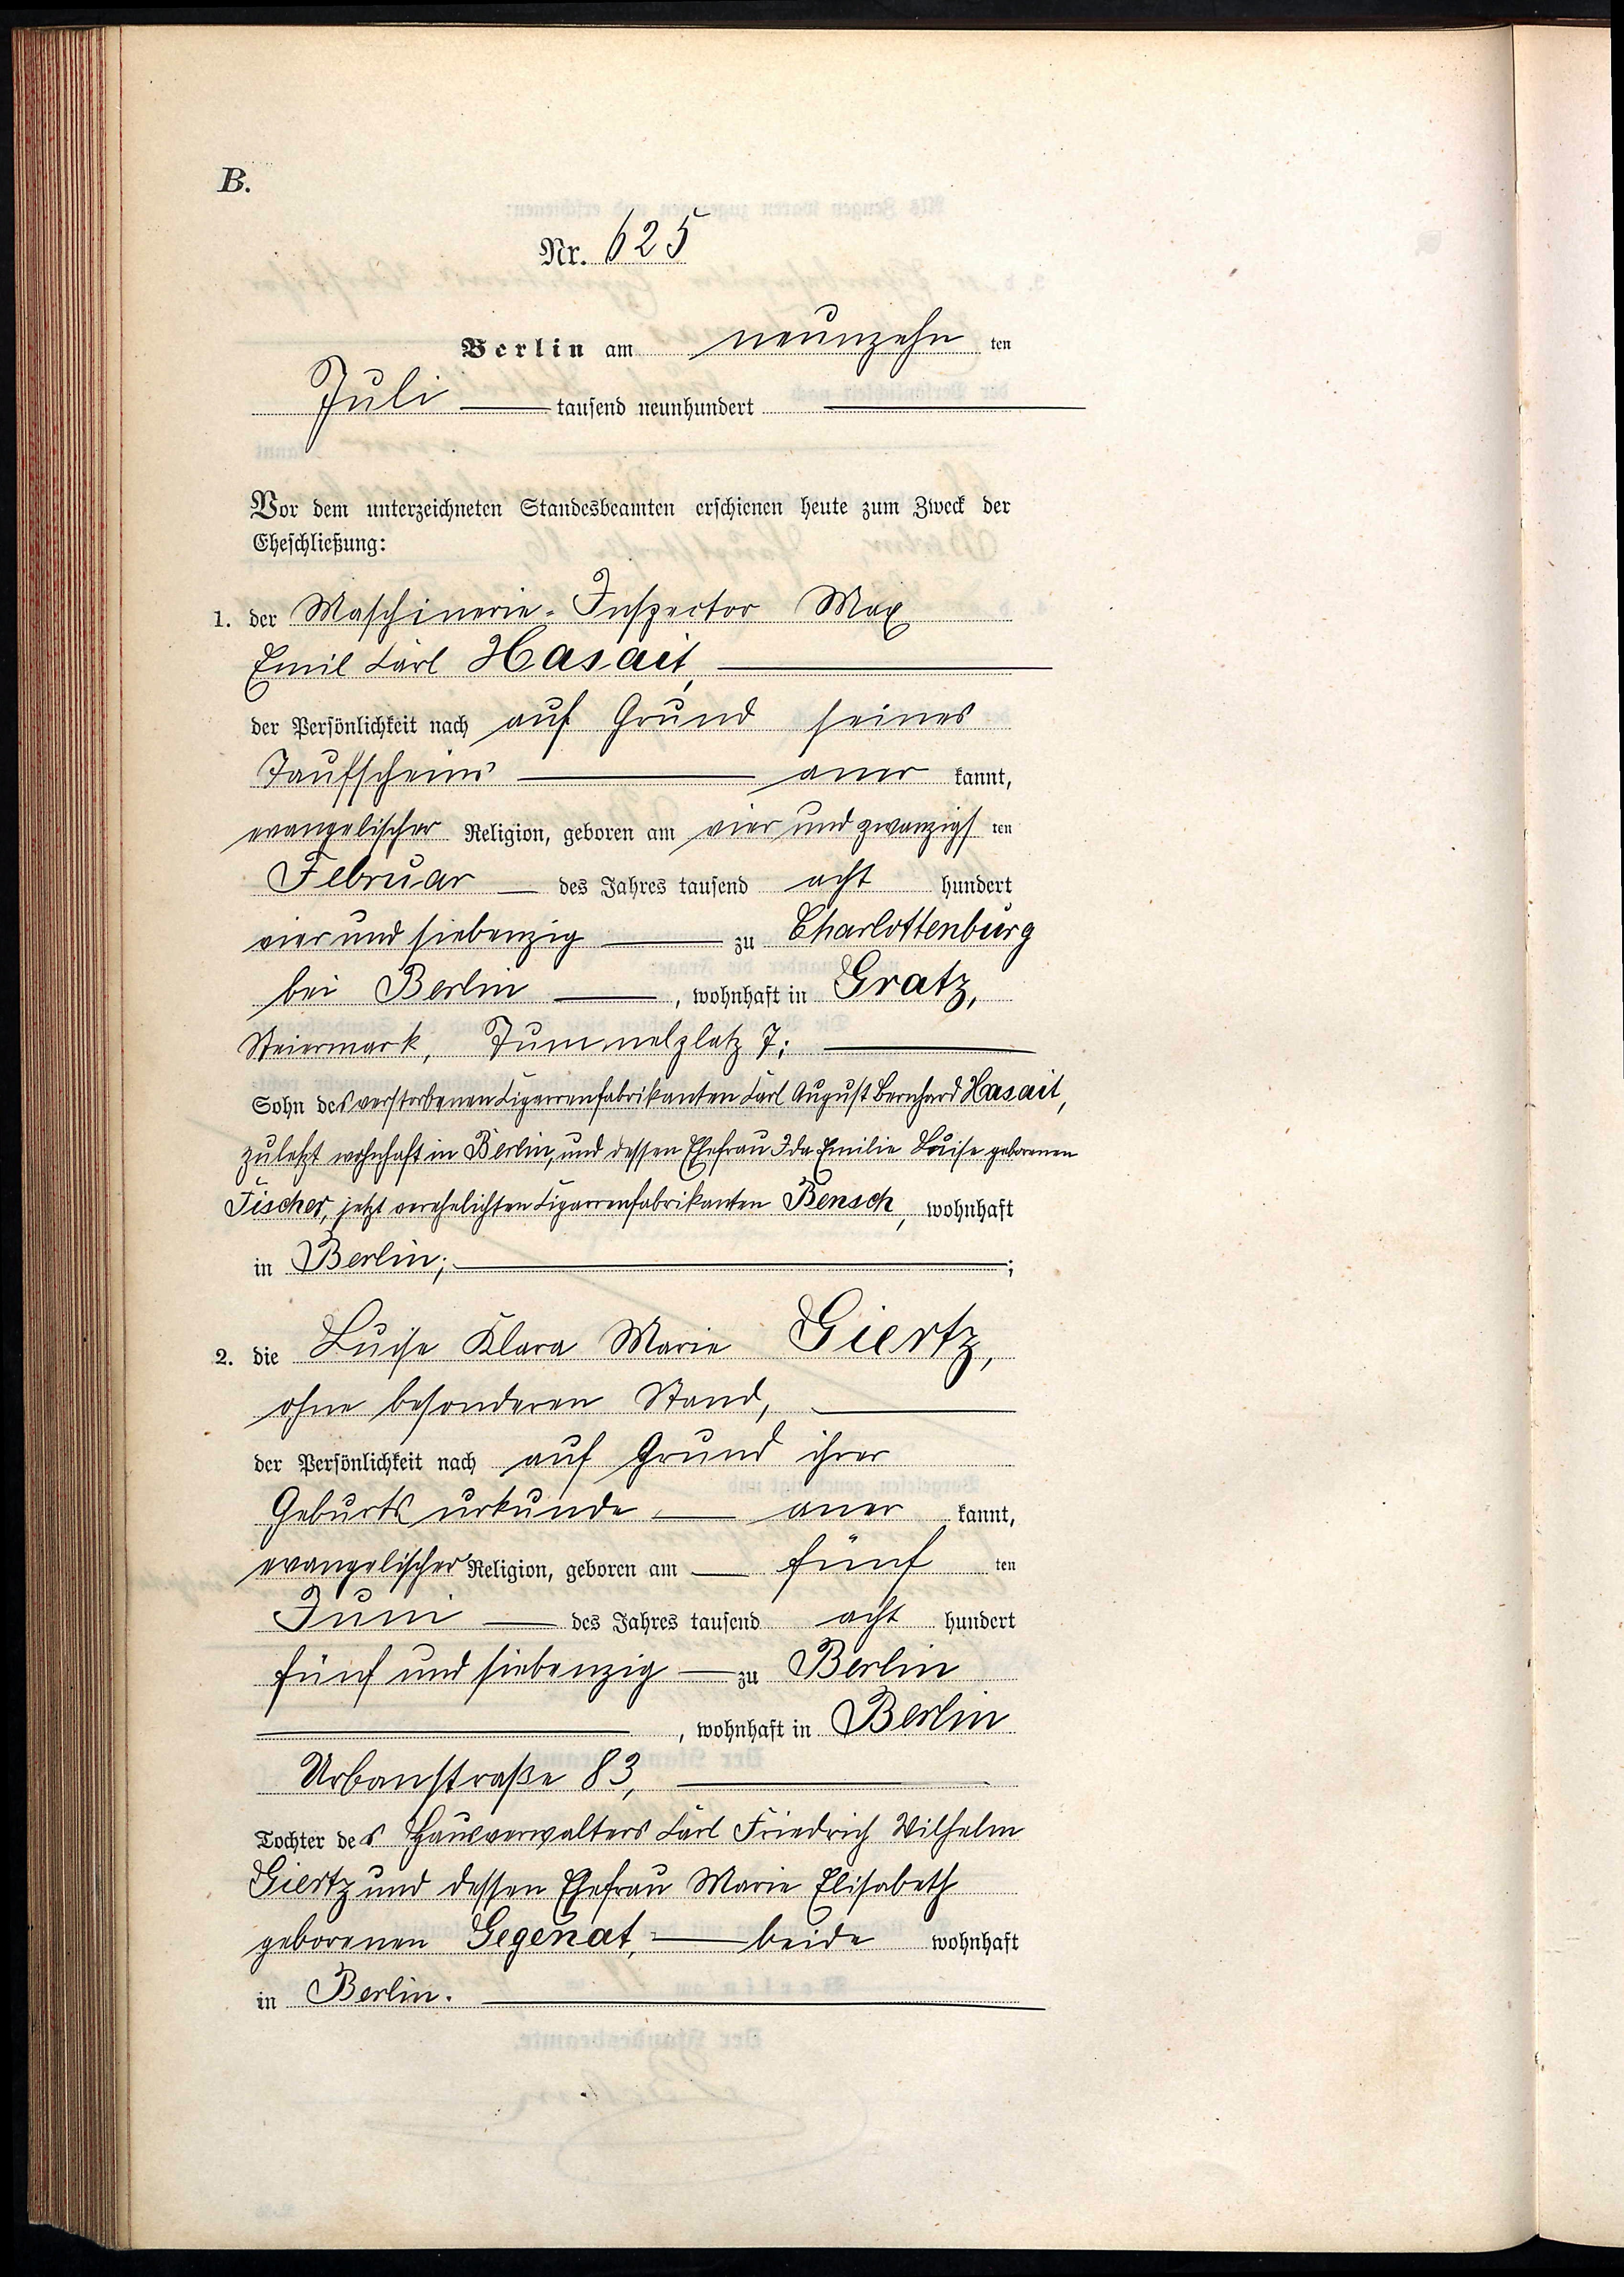 B.
Nr. 625
Berlin am neunzehn ten
Juli tausend neunhundert
Vor dem unterzeichneten Standesbeamten erschienen heute zum Zweck der
Eheschließung:
1. der Maschinerie-Inspector Max
Emil Carl Hasait,
der Persönlichkeit nach auf Grund seines
Taufscheins aner kannt,
evangelischer Religion, geboren am vier und zwanzigs ten
Februar des Jahres tausend acht hundert
vier und siebenzig zu Charlottenburg
bei Berlin, wohnhaft in Gratz,
Steiermark, Tummelplatz 7;
Sohn des verstorbenen Cigarrenfabrikanten Carl August Bernhard Hasait,
zuletzt wohnhaft in Berlin, und dessen Ehefrau Ida Emilie Louise geborenen
Fischer, jetzt verehelichten Cigarrenfabrikanten Bensch, wohnhaft
in Berlin; ;
2. die Luise Klara Marie Giertz,
ohne besonderen Stand,
der Persönlichkeit nach auf Grund ihrer
Geburtsurkunde aner kannt,
evangelischer Religion, geboren am fünf ten
Juni des Jahres tausend acht hundert
fünf und siebenzig zu Berlin
, wohnhaft in Berlin
Urbanstraße 83,
Tochter des Hausverwalters Carl Friedrich Wilhelm
Giertz und dessen Ehefrau Marie Elisabeth
geborenen Gegenat, beide wohnhaft
in Berlin.